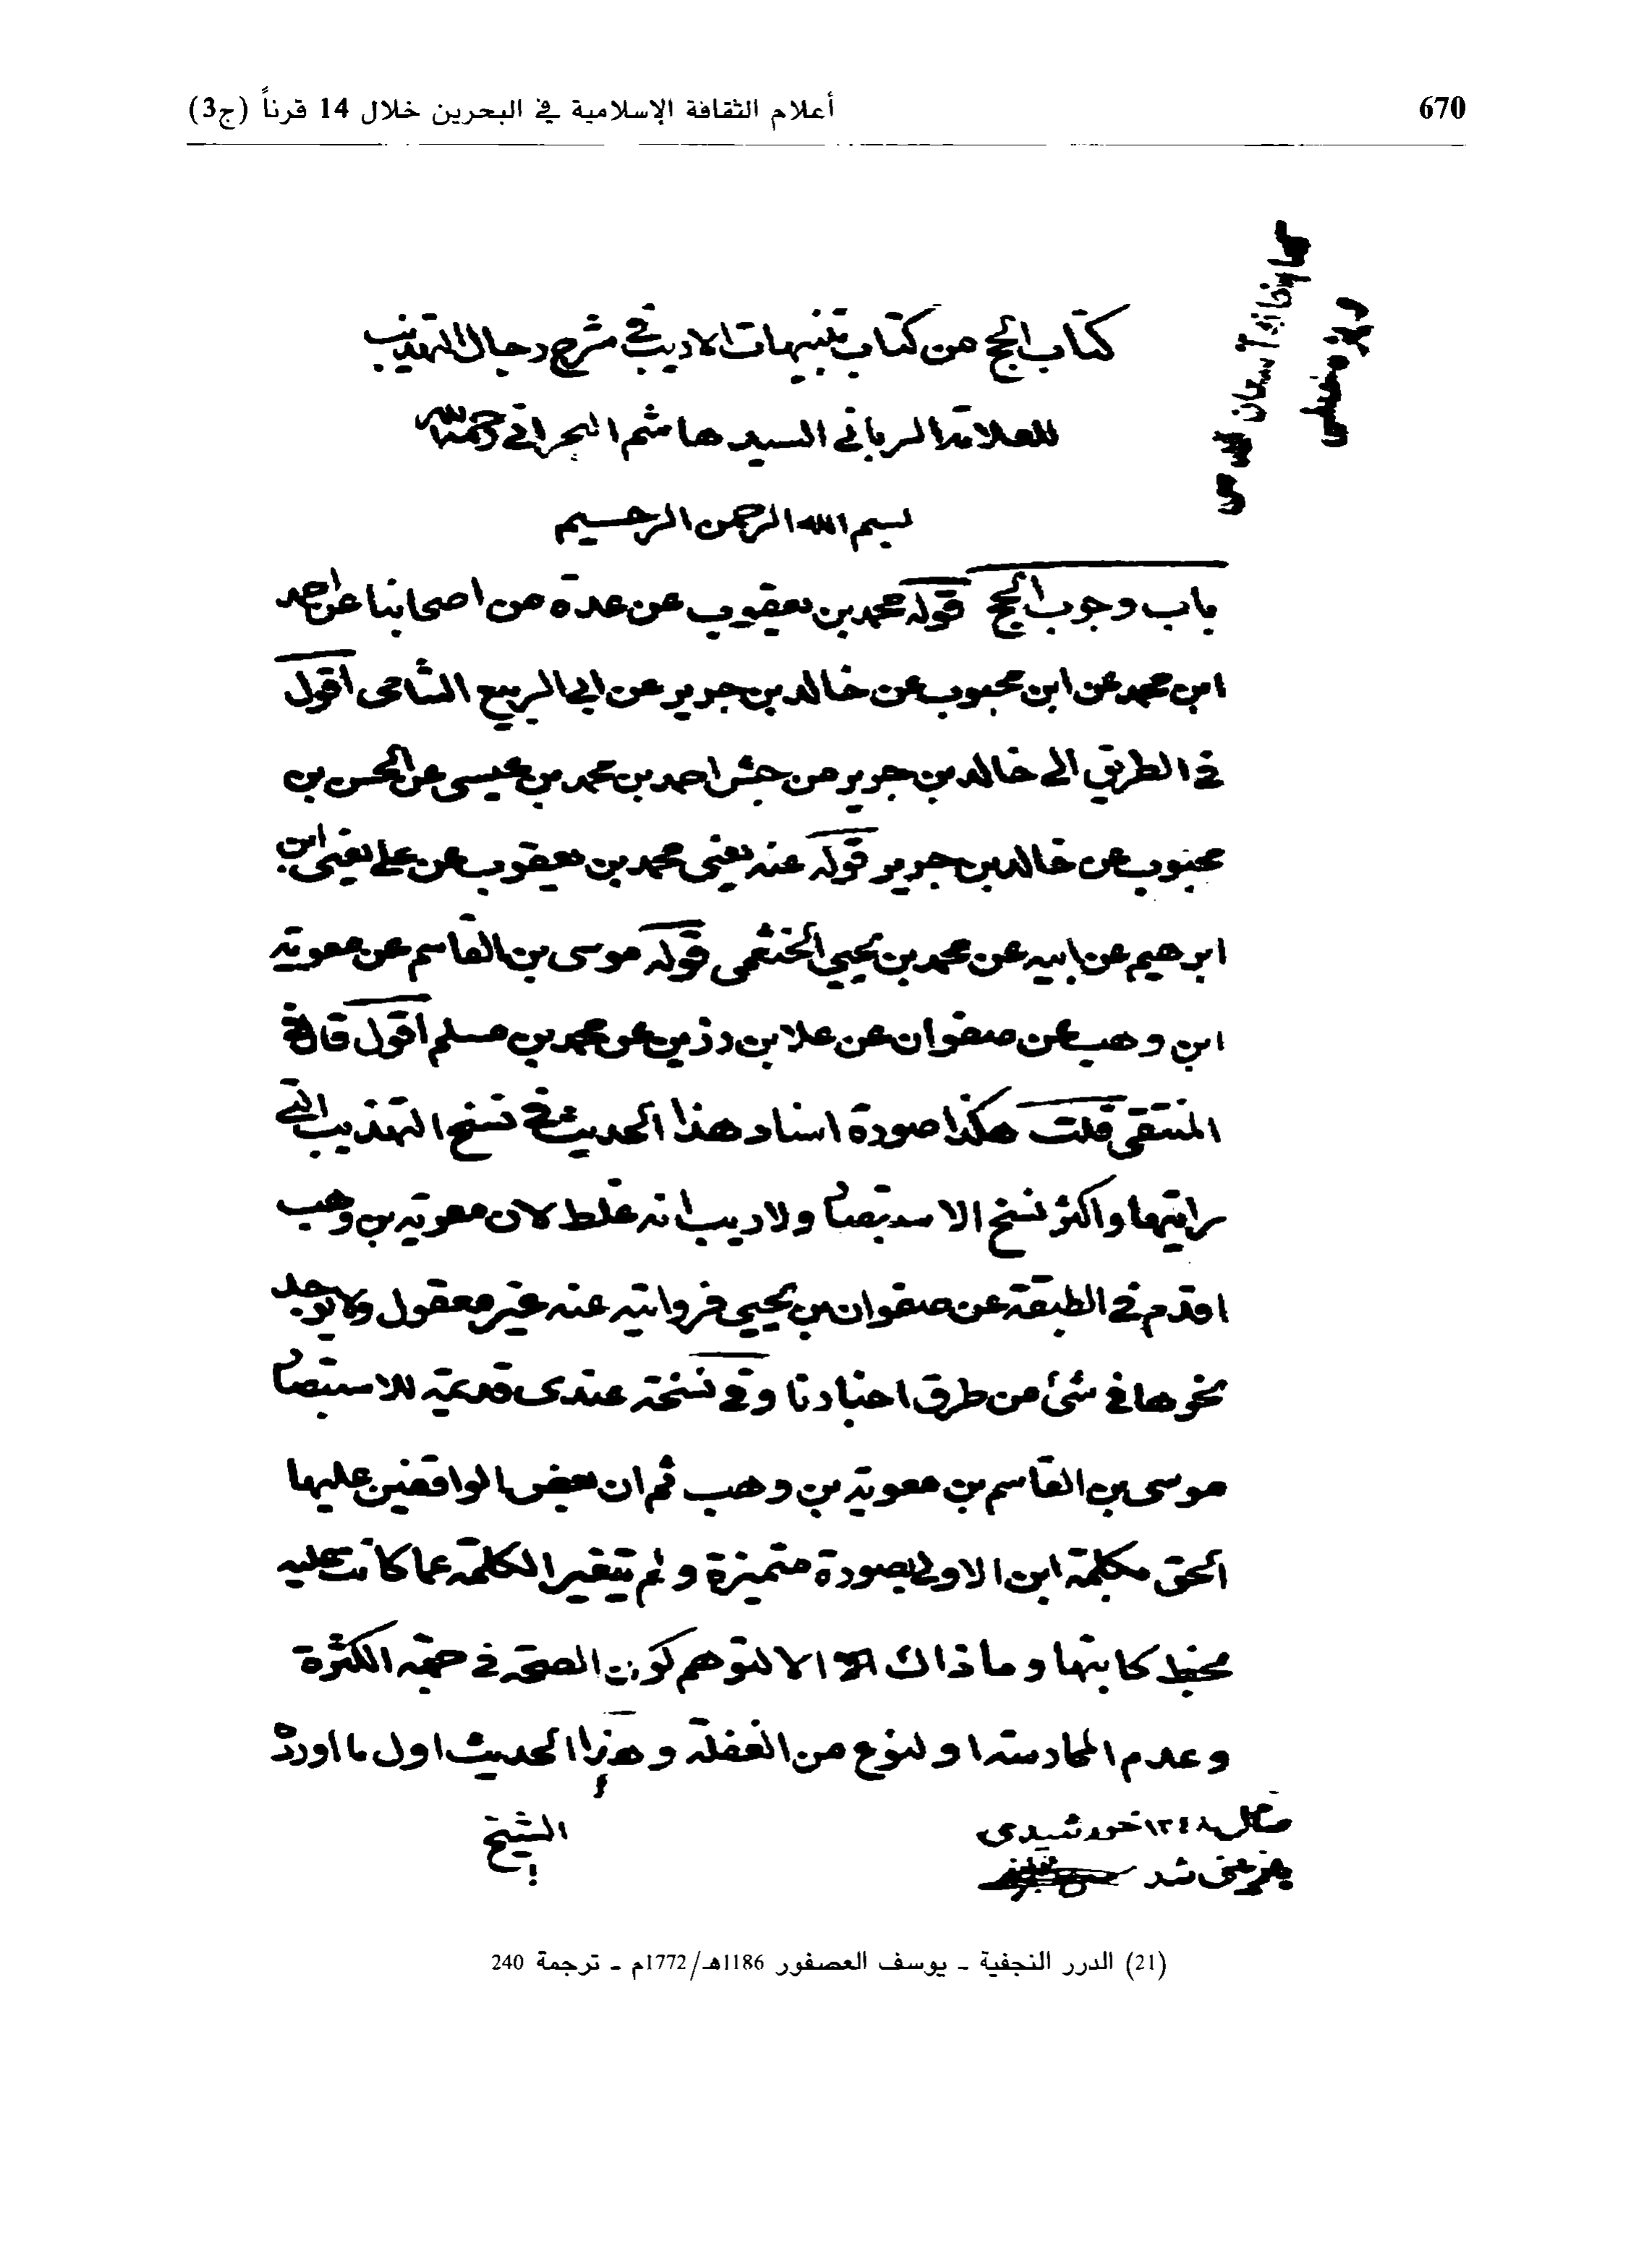 670
أعلام الثقافة الإسلامية في البحرين خلال 14 قرناً (ج3)
كتاب الحج من كتاب تنبيهات الاديب في شرح رجال التهذيب
للعلامة الرباني السيد هاشم البحراني رحمه الله
بسم الله الرحمن الرحيم
باب وجوب الحج قوله محمد بن يعقوب عن عدة من اصحابنا عن احمد
ابن محمد عن ابن محبوب عن خالد بن جرير عن ابي الربيع الشامى اقول
في الطريق الى خالد بن جرير من جش احمد بن محمد بن عيسى عن الحسن بن
محبوب عن خالد بن جرير قوله عنه يعنى محمد بن يعقوب عن علي يعنى ابن
ابرهيم عن ابيه عن محمد بن يحيى الخثعمى قوله موسى بن القاسم عن معوية
ابن وهب عن صفوان عن علا بن رزين عن محمد بن مسلم اقول قال في
المنتقى قلت هكذا صورة اسناد هذا الحديث في نسخ التهذيب التي
رايتها واكثر نسخ الاستبصار ولا ريب انه غلط لان معوية بن وهب
اقدم في الطبقة عن صفوان بن يحيى فروايته عنه غير معقول ولا يوجد
نحوها في شئ من طرق اخبارنا وفي نسخة عندى قديمة للاستبصار
موسى بن القاسم بن معوية بن وهب ثم ان بعض الواقفين عليها
الحق مكلمة ابن الاولى بصورة متميزة ولم يتغير الكلمة عما كانت عليه
بخط كاتبها وما ذاك الا لتوهم كون الصحة في حيّز الكثرة
وعدم الممارسة او لنوع من الغفلة وهذا الحديث اول ما اورده
الشيخ
١٣٤٨ خورشيدى
شد
(21) الدرر النجفية ـ يوسف العصفور 1186هـ/1772م ـ ترجمة 240